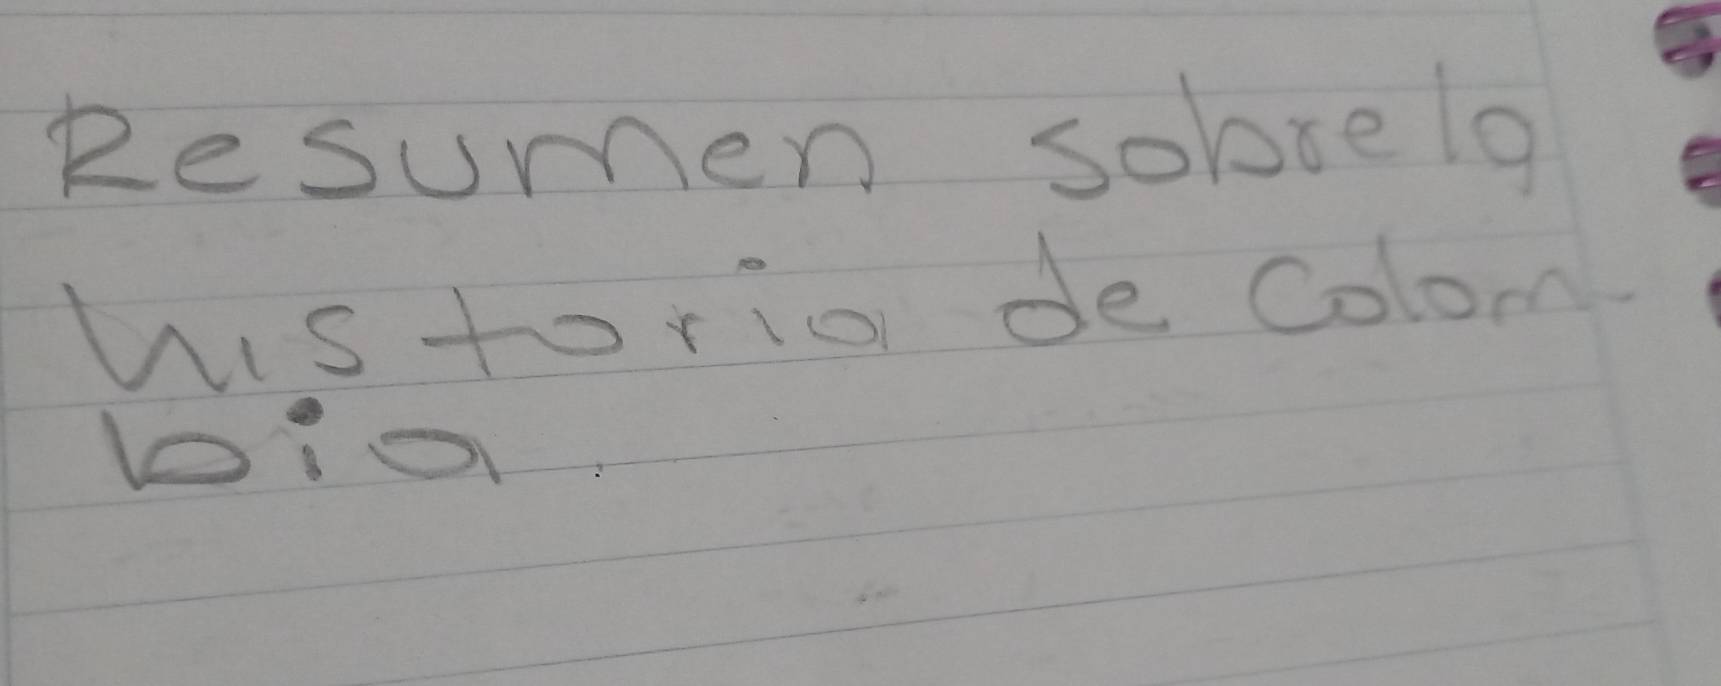 Resumen sobre la
historia de Colom-
bia.